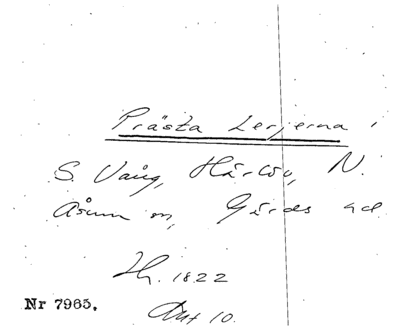 Prästa Lerjerna i
S. Vång, Härlöv, N.
Åsum sn, Gärds hd
Hg. 1822
Nr 7965.
Akt 10.